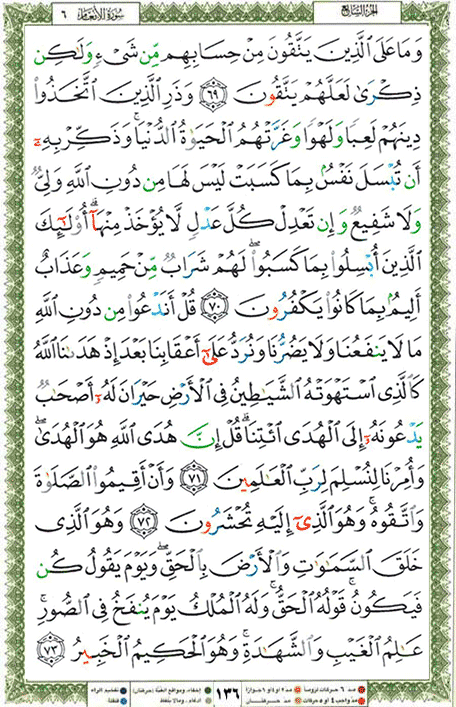 الجزء السابع سورة الأنعام ٦
وَمَا عَلَى ٱلَّذِينَ يَتَّقُونَ مِنْ حِسَابِهِم مِّن شَىْءٍ وَلَٰكِن
ذِكْرَىٰ لَعَلَّهُمْ يَتَّقُونَ ٦٩ وَذَرِ ٱلَّذِينَ ٱتَّخَذُوا۟
دِينَهُمْ لَعِبًا وَلَهْوًا وَغَرَّتْهُمُ ٱلْحَيَوٰةُ ٱلدُّنْيَا ۚ وَذَكِّرْ بِهِۦٓ
أَن تُبْسَلَ نَفْسٌۢ بِمَا كَسَبَتْ لَيْسَ لَهَا مِن دُونِ ٱللَّهِ وَلِىٌّ
وَلَا شَفِيعٌ وَإِن تَعْدِلْ كُلَّ عَدْلٍ لَّا يُؤْخَذْ مِنْهَآ ۗ أُو۟لَٰٓئِكَ
ٱلَّذِينَ أُبْسِلُوا۟ بِمَا كَسَبُوا۟ ۖ لَهُمْ شَرَابٌ مِّنْ حَمِيمٍ وَعَذَابٌ
أَلِيمٌۢ بِمَا كَانُوا۟ يَكْفُرُونَ ٧٠ قُلْ أَنَدْعُوا۟ مِن دُونِ ٱللَّهِ
مَا لَا يَنفَعُنَا وَلَا يَضُرُّنَا وَنُرَدُّ عَلَىٰٓ أَعْقَابِنَا بَعْدَ إِذْ هَدَىٰنَا ٱللَّهُ
كَٱلَّذِى ٱسْتَهْوَتْهُ ٱلشَّيَٰطِينُ فِى ٱلْأَرْضِ حَيْرَانَ لَهُۥٓ أَصْحَٰبٌ
يَدْعُونَهُۥٓ إِلَى ٱلْهُدَى ٱئْتِنَا ۗ قُلْ إِنَّ هُدَى ٱللَّهِ هُوَ ٱلْهُدَىٰ ۖ
وَأُمِرْنَا لِنُسْلِمَ لِرَبِّ ٱلْعَٰلَمِينَ ٧١ وَأَنْ أَقِيمُوا۟ ٱلصَّلَوٰةَ
وَٱتَّقُوهُ ۚ وَهُوَ ٱلَّذِىٓ إِلَيْهِ تُحْشَرُونَ ٧٢ وَهُوَ ٱلَّذِى
خَلَقَ ٱلسَّمَٰوَٰتِ وَٱلْأَرْضَ بِٱلْحَقِّ ۖ وَيَوْمَ يَقُولُ كُن
فَيَكُونُ ۚ قَوْلُهُ ٱلْحَقُّ ۚ وَلَهُ ٱلْمُلْكُ يَوْمَ يُنفَخُ فِى ٱلصُّورِ ۚ
عَٰلِمُ ٱلْغَيْبِ وَٱلشَّهَٰدَةِ ۚ وَهُوَ ٱلْحَكِيمُ ٱلْخَبِيرُ ٧٣
مد ٦ حركات لزوماً مد ٢ أو ٤ أو ٦ جوازاً ١٣٦ إخفاء، ومواقع الغنة (حركتان) تفخيم الراء
مد واجب ٤ أو ٥ حركات مد حركتان إدغام، وما لا يلفظ قلقلة